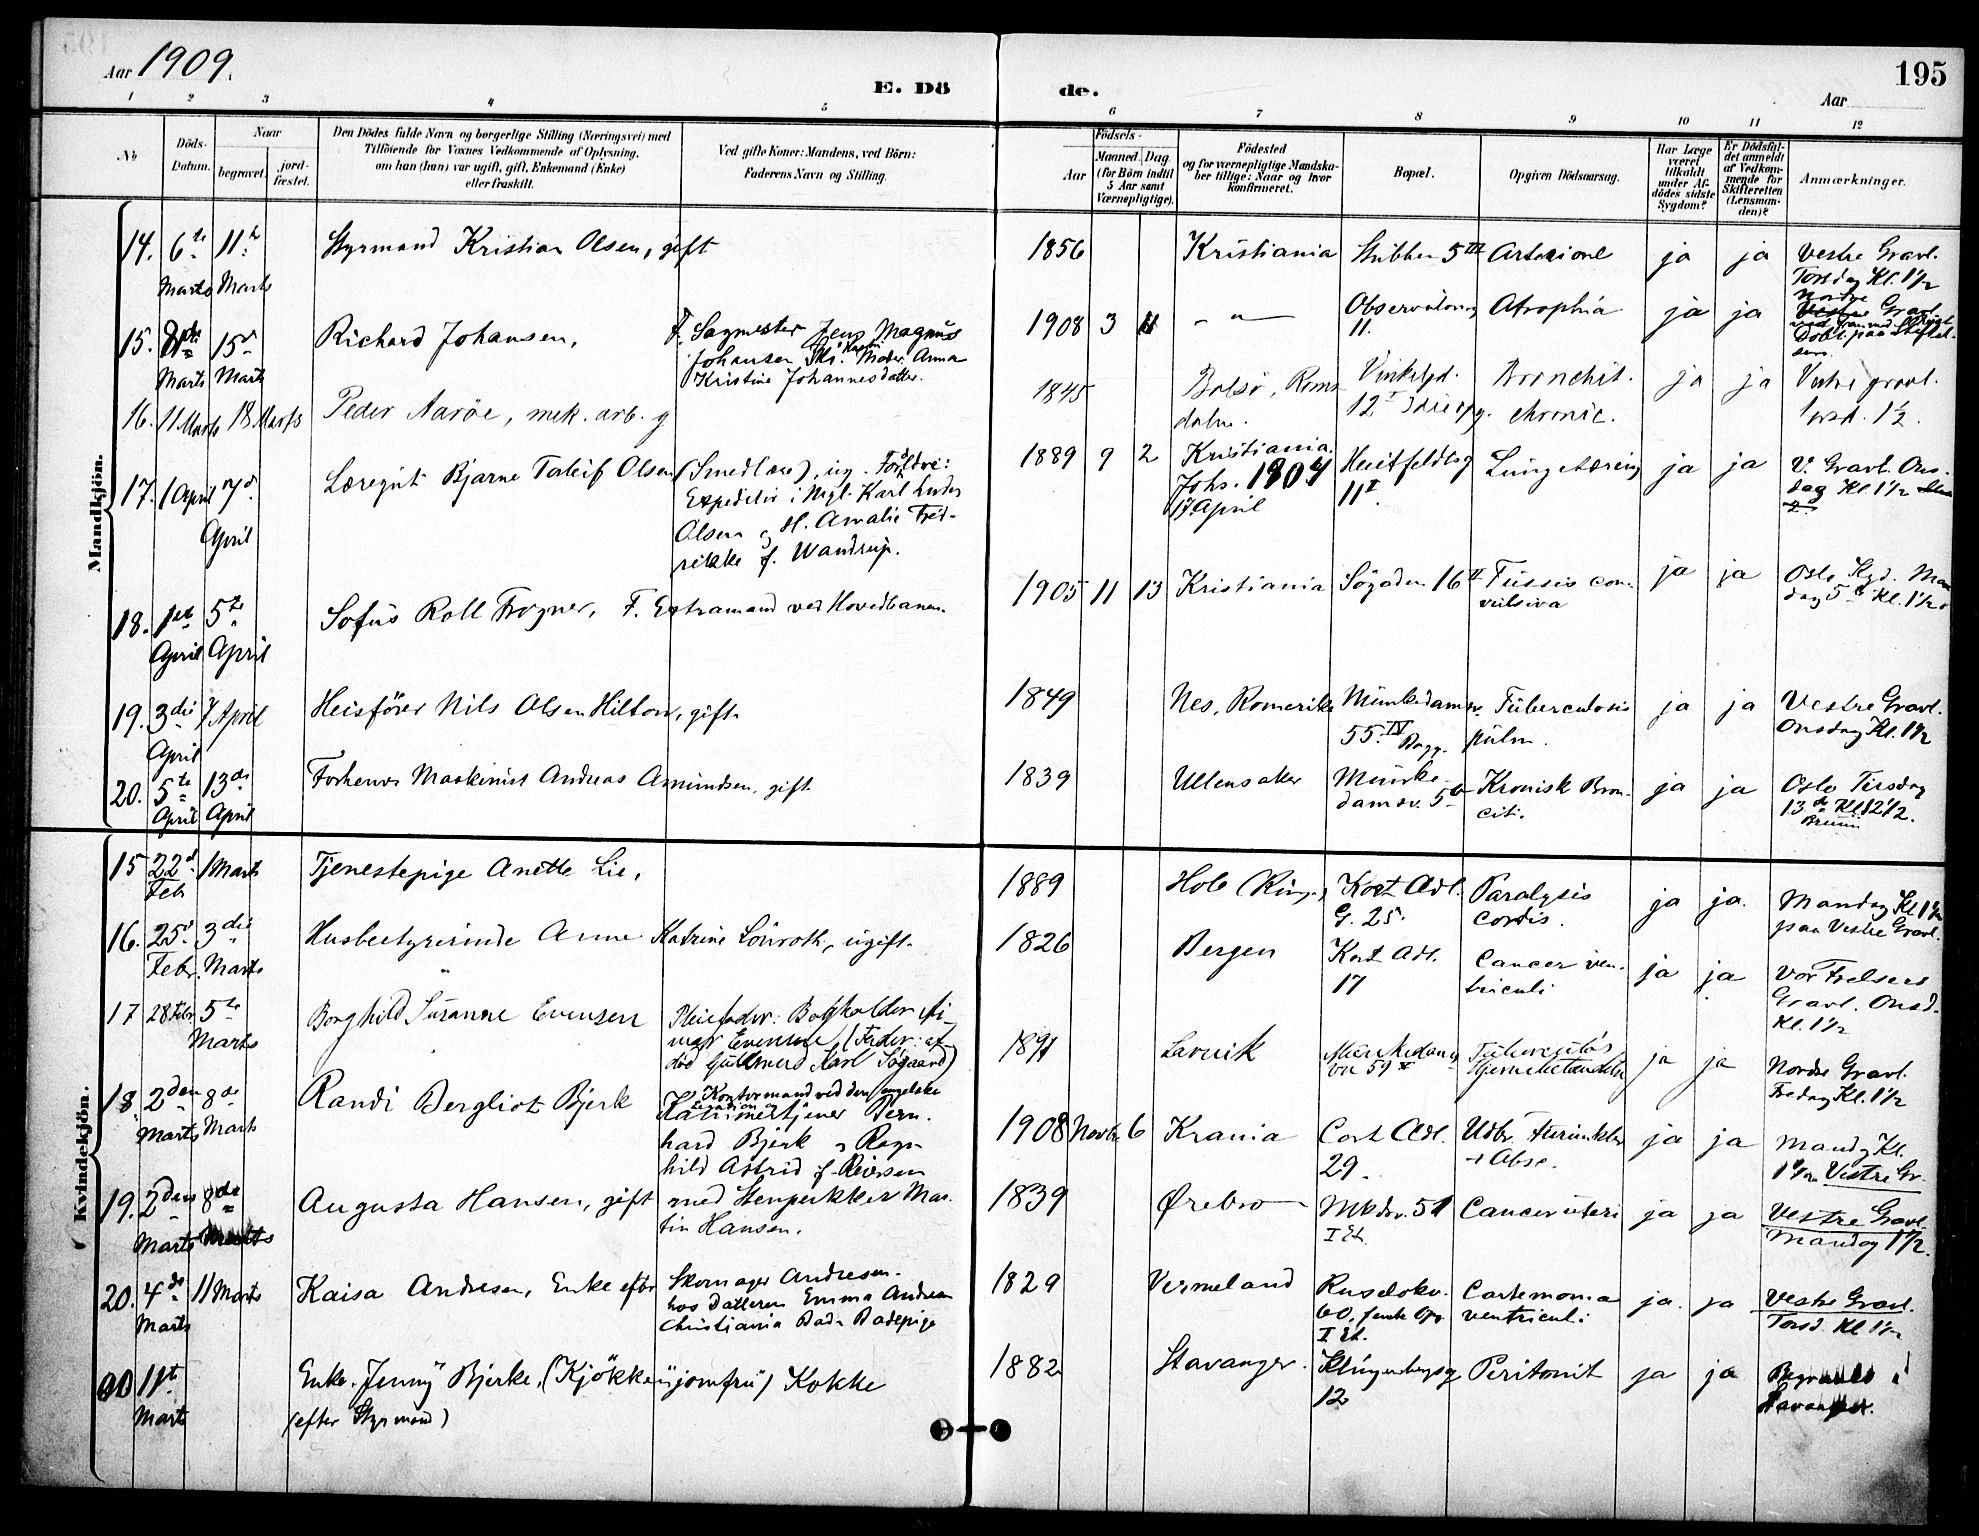 Aar 1909.
E. Dö
de.
195
Aar
1 2 3 4 5 6 7 8 9 10 11 12
No
Döds-
Datum.
Naar
begravet.
jord-
fæstet.
Den Dödes fulde Navn og borgerlige Stilling (Næringsvei) med
Tilföiende for Voxnes Vedkommende af Oplysning,
om han (hun) var ugift, gift, Enkemand (Enke)
eller fraskilt.
Ved gifte Koner: Mandens, ved Börn:
Faderens Navn og Stilling.
Födsels-
Aar
Maaned.
Dag.
(for Börn indtil
5 Aar samt
Værnepligtige).
Födested
og for værnepligtige Mandska-
ber tillige: Naar og hvor
konfirmeret.
Bopæl.
Opgiven Dödsaarsag.
Har Læge
været
tilkaldt
under Af-
dödes sidste
Sygdom?
Er Dödsfal-
det anmeldt
af Vedkom-
mende for
Skifteretten
(Lensman-
den)?
Anmærkninger.
Mandkjön.
14. 6te Marts 11te Marts
Styrmand Kristian Olsen, gift
1856 Kristiania 5 III ja ja
Vestre Gravl.
Torsdag Kl. 1½
15. Marts 15d Marts
Richard Johansen,
F. Sagmester Jens Magnus
Johansen Moder Anna
Kristine Johannesdatter.
1908 3 11 - " -
11. Atrophia ja ja
Nordre
16. 11 Marts 18 Marts
Peder Aaröe, mek. arb. g
1845 Bolsö, Roms
dalen.
12 I
Bronchit.
chronic. ja ja
Vestre gravl.
Torsd. 1½.
17. 1 April 7d April
Læregut Bjarne Toleif Olsen (Smedlære), ug. Forældre:
Expeditör i Karl
Olsen og H. Amalie Fred-
rikke f. Wandrup.
1889 9 2 Kristiania.
Johs. 1904
17. April
Huitfeldtsg
11 I
Lungetæring ja ja
V. Gravl. Ons-
dag Kl. 1½
18. 1ste April 5te April
Sofus Roll Frogner, F. Extramand ved Hovedbanen.
1905 11 13 Kristiania Sögaden 16 II Tussis con-
vulsiva ja ja
Oslo Kgd. Man
dag 5te Kl. 1½
19. 3die April 7 April
Heisförer Nils Olsen Hilton, gift.
1849 Nes, Romerike Munkedamsv.
55. IV Bagg.
Tuberculosis
pulm. ja ja
Vestre Gravl.
Onsdag Kl. 1½
20. 5te April 13de April
Forhenv. Maskinist Andreas Amundsen, gift
1839 Ullensaker Munke-
damsv. 5b
Kronisk Bron-
cit. ja ja
Oslo Tirsdag
13de Kl. 12½.
Kvindekjön.
15 22d Feb 1 Marts
Tjenestepige Anette Lie,
1889 Hole (Ring.) Kort Adl.
G. 25.
Paralysis
cordis. ja ja.
Mandag Kl 1½
paa Vestre Gravl.
16. 25d Febr. 3die Marts
Husbestyrerinde Anne Katrine Lönroth, ugift.
1826 Bergen Kort Adl.
17
Cancer ven-
triculi ja ja
Vor Frelsers
Gravl. Onsd.
Kl. 1½
17 28 Febr 5te Marts
Borghild Susanne Evensen
Pleiefader: Bogholder
Evensen, (Fader: af-
död Karl Sögaard)
1891 Larvik Munkedams
vn 59
ja ja
Nordre Gravl.
Fredag Kl. 1½
18. 2den Marts 8de Marts
Randi Bergliot Bjerk
Kontormand ved den engelske
Legation
Bern-
hard Bjerk og Ragn
hild Astrid f. Reiersen
1908 Novbr 6 Krania Cort Adl.
29.
ja ja
Mandag Kl.
1½ Vestre Gr.
19. 2den Marts 8de
Augusta Hansen, gift med Stenpukker Mar-
tin Hansen.
1839 Ørebro Mkdsv. 51
I Et.
Cancer uteri ja ja
Vestre Gravl.
Mandag 1½.
20. 4de Marts 11 Marts
Kaisa Andresen, Enke efter Skomager Andresen.
hos datteren Emma Andresen
Christiania Bad. Badepige
1829 Vermeland Ruselökv.
60.
I Et.
ventriculi ja ja
Vestre Gravl.
Torsd. Kl 1½
1st Marts
Enke Jenny Bjerke, (Kjökkenjomfru) Kokke
(efter Styrmand)
1882 Stavanger. Klingenbergsg
12
Peritonit ja ja